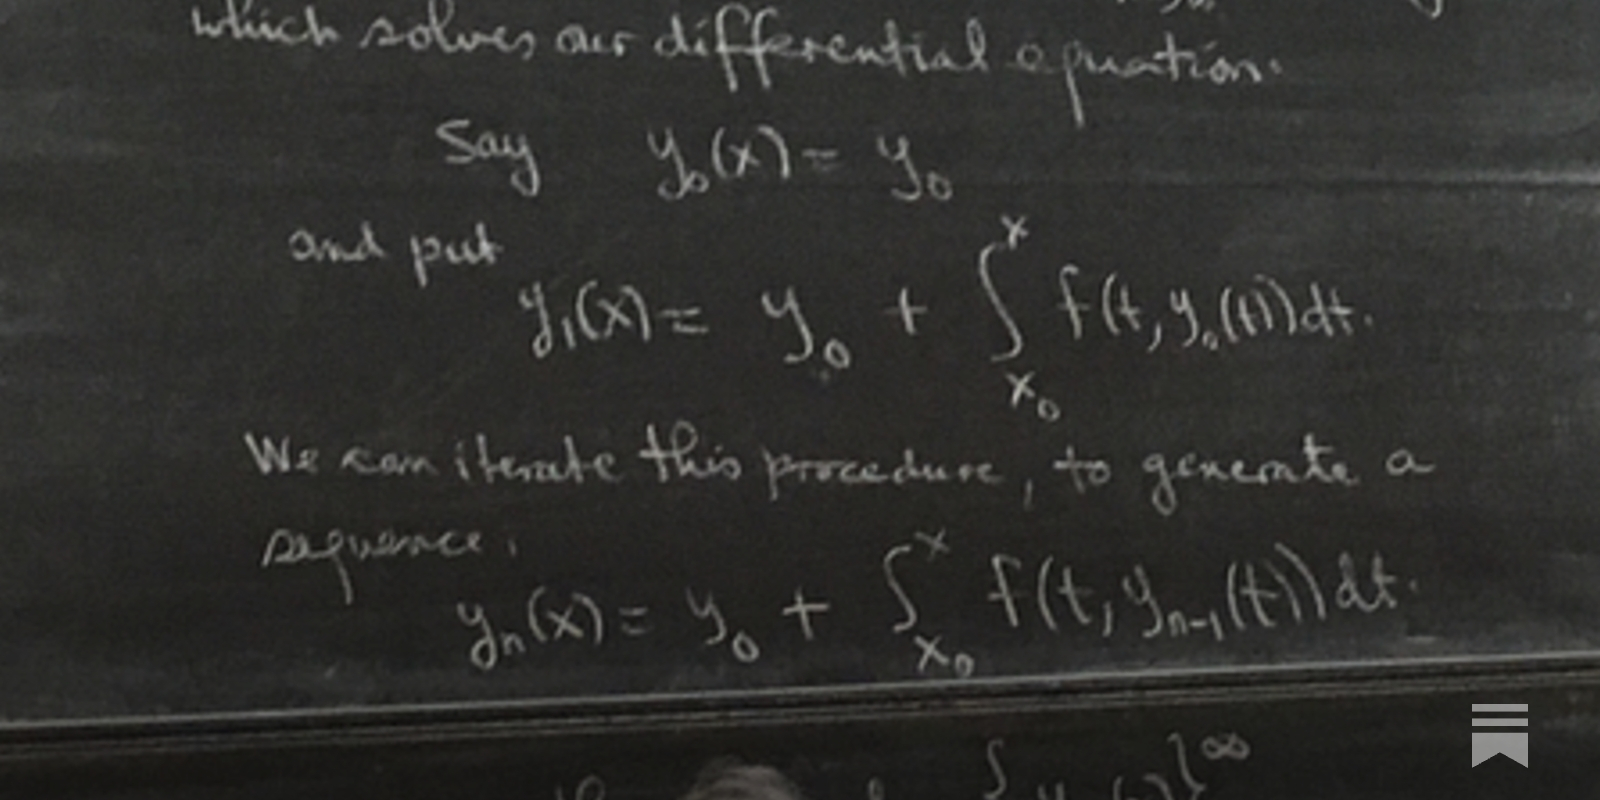 which solves our differential equation.
Say y₀(x) = y₀
and put
y₁(x) = y₀ + ∫_{x₀}^{x} f(t, y₀(t))dt.
We can iterate this procedure, to generate a
sequence.
yₙ(x) = y₀ + ∫_{x₀}^{x} f(t, yₙ₋₁(t))dt.